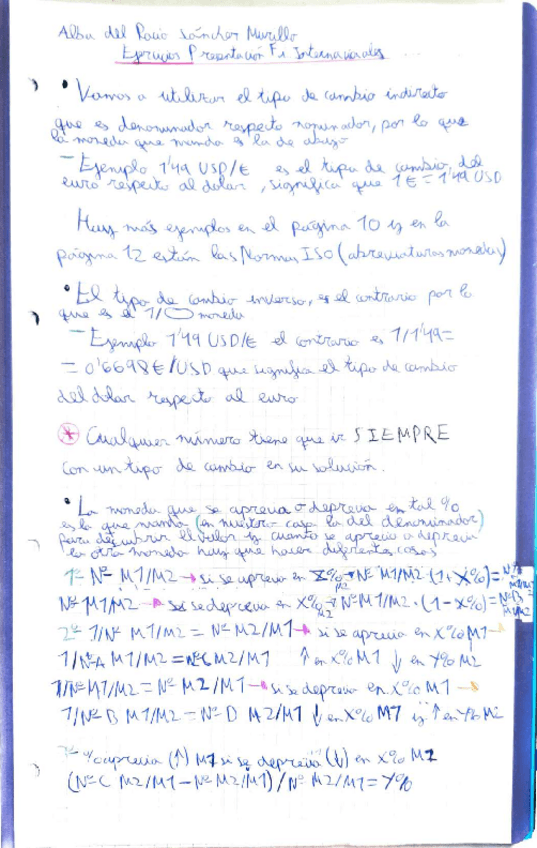 Alba del Rocio Sánchez Murillo
Ejercicios Presentación Fi Internacionales
• Vamos a utilizar el tipo de cambio indirecto
que es denominador respecto nominador, por lo que
la moneda que manda es la de abajo
- Ejemplo 1'49 USD/€ es el tipo de cambio del
euro respecto al dolar, significa que 1€ = 1'49 USD
Hay más ejemplos en el página 10 y en la
página 12 están las Normas ISO (abreviaturas monedas)
• El tipo de cambio inverso, es el contrario por lo
que es el 1/ moneda
- Ejemplo 1'49 USD/€ el contrario es 1/1'49=
= 0'6698 €/USD que significa el tipo de cambio
del dolar respecto al euro
* Cualquier número tiene que ir SIEMPRE
con un tipo de cambio en su solución.
• La moneda que se aprecia o deprecia en tal %
es la que manda (en nuestro caso la del denominador)
para descubrir el valor y cuanto se aprecia o deprecia
la otra moneda hay que hacer diferentes cosas
1º Nº M1/M2 → si se aprecia en X% M2 → Nº M1/M2 · (1+X%) =
Nº M1/M2 → si se deprecia en X% M2 → Nº M1/M2 · (1-X%) = Nº B M1/M2
2º 1/Nº M1/M2 = Nº M2/M1 → si se aprecia en X% M1 →
1/Nº A M1/M2 = Nº C M2/M1 ↑ en X% M1 ↓ en Y% M2
1/Nº M1/M2 = Nº M2/M1 → si se deprecia en X% M1 →
1/Nº B M1/M2 = Nº D M2/M1 ↓ en X% M1 y ↑ en Y% M2
% aprecia (↑) M1 si se deprecia (↓) en X% M2
(Nº C M2/M1 - Nº M2/M1) / Nº M2/M1 = Y%